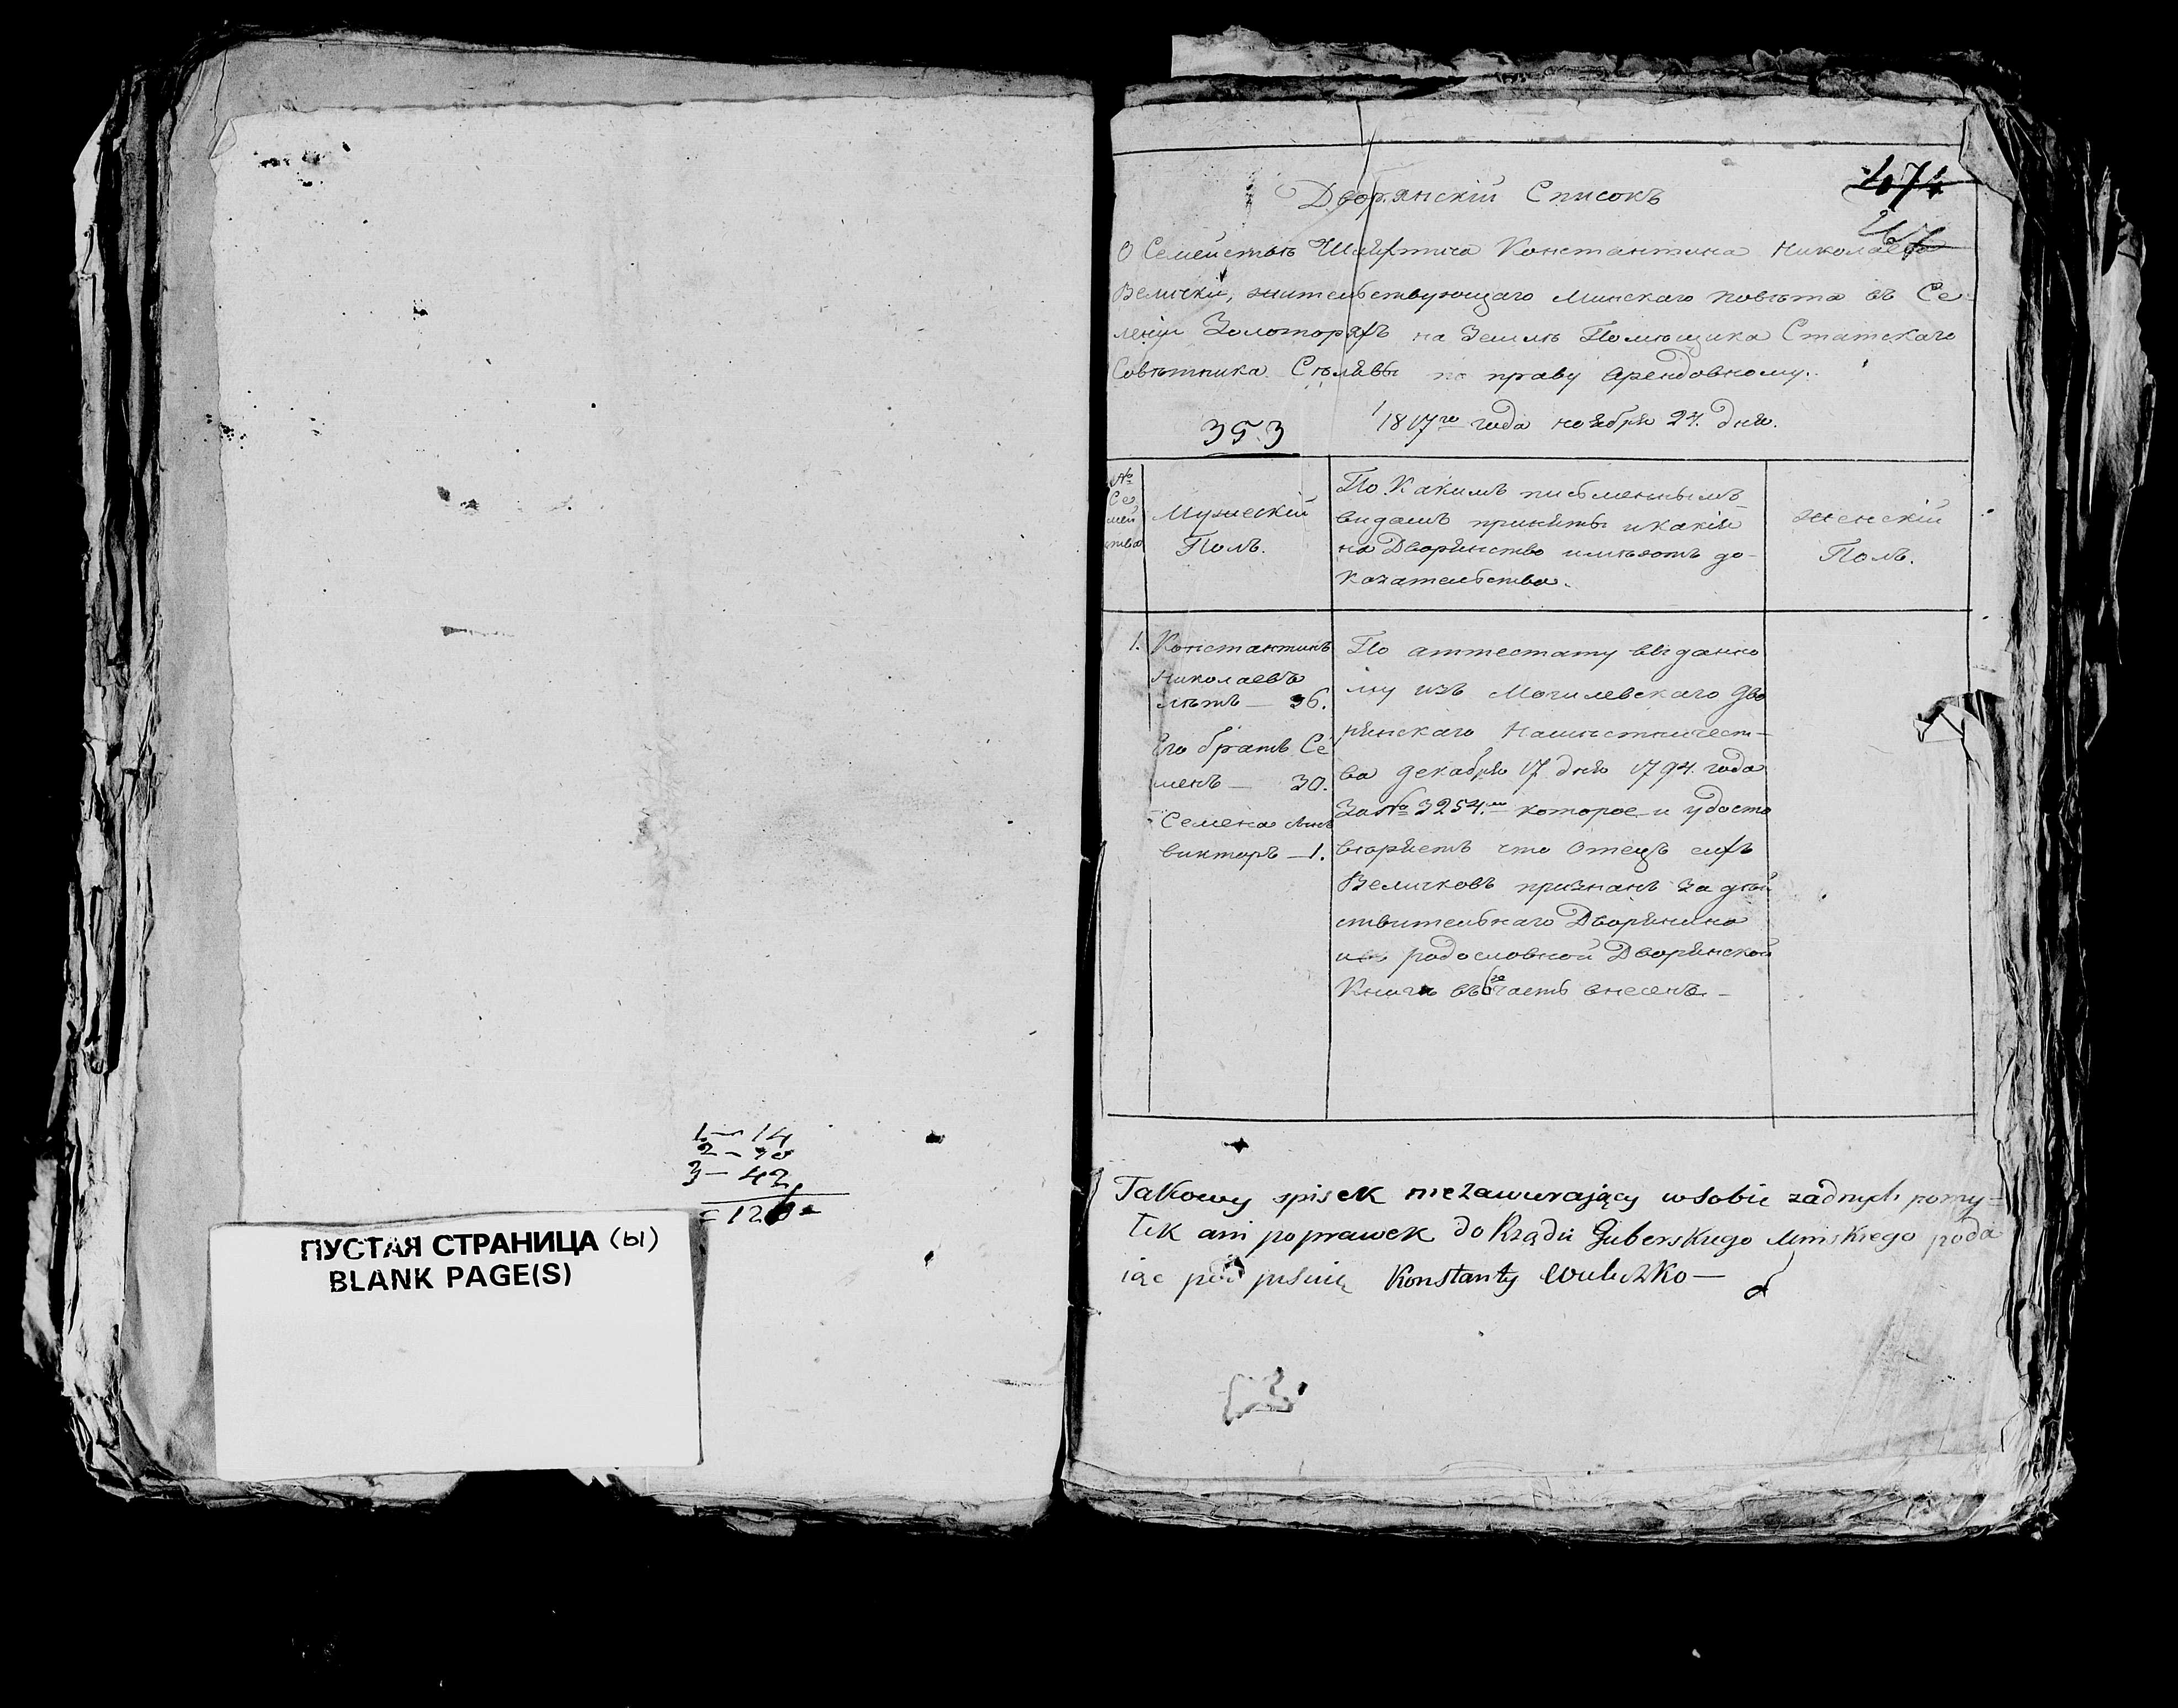 1 — 14
2 — 70
3 — 42
= 126 =
ПУСТАЯ СТРАНИЦА (ы)
BLANK PAGE(S)
474
Дворянскій Списокъ
О Семействѣ Шляхтича Константина Николаева
Велички, жительствующаго Минскаго повѣта въ Се-
леніи Золоторяхъ на Землѣ Помѣщика Статскаго
Совѣтника Сѣлявы по праву Арендовному.
353
1817го года ноября 24. дня.
№
Се
мей
ства
Мужескій
Полъ.
По Какимъ письменнымъ
видамъ приняты и какія
на Дворянство имѣютъ до-
казательства.
Женскій
Полъ.
1.
Константинъ
Николаевъ
лѣтъ — 36.
Его братъ Се
менъ — 30.
Семена сынъ
викторъ — 1.
По аттестату выданно
му изъ Могилевскаго Дво
рянскаго Намѣстничест-
ва декабря 17 дня 1794. года
За № 3254.мъ которое и удосто
вѣряетъ что Отецъ ихъ
Величковъ признанъ за дѣй
ствительнаго Дворянина
и въ родословной Дворянской
Книгѣ въ 6ю часть внесенъ —
Takowy spisek niezawierający w sobie żadnych pomy-
łek ani poprawek do Rządu Guberskiego Minskiego poda
iąc pod pisuię Konstanty Wieliczko —